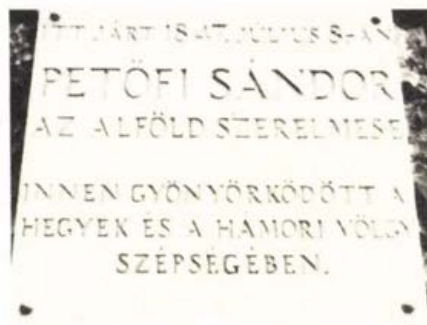 ITT JÁRT 1847. JÚLIUS 8-ÁN
PETŐFI SÁNDOR
AZ ALFÖLD SZERELMESE
INNEN GYÖNYÖRKÖDÖTT A
HEGYEK ÉS A HÁMORI VÖLGY
SZÉPSÉGÉBEN.